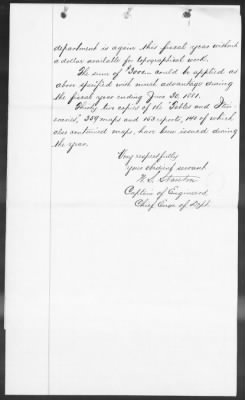 department is again this fiscal year without
a dollar available for topographical work.
The sum of $3000.00 could be applied as
above specified with much advantage during
the fiscal year ending June 30, 1881.
Thirty two copies of the "Tables and Itin-
eraries," 259 maps and 153 reports, 140 of which
also contained maps, have been issued during
the year.
Very respectfully
Your obedient servant
W. S. Stanton
Captain of Engineers
Chief Engr of Dept.